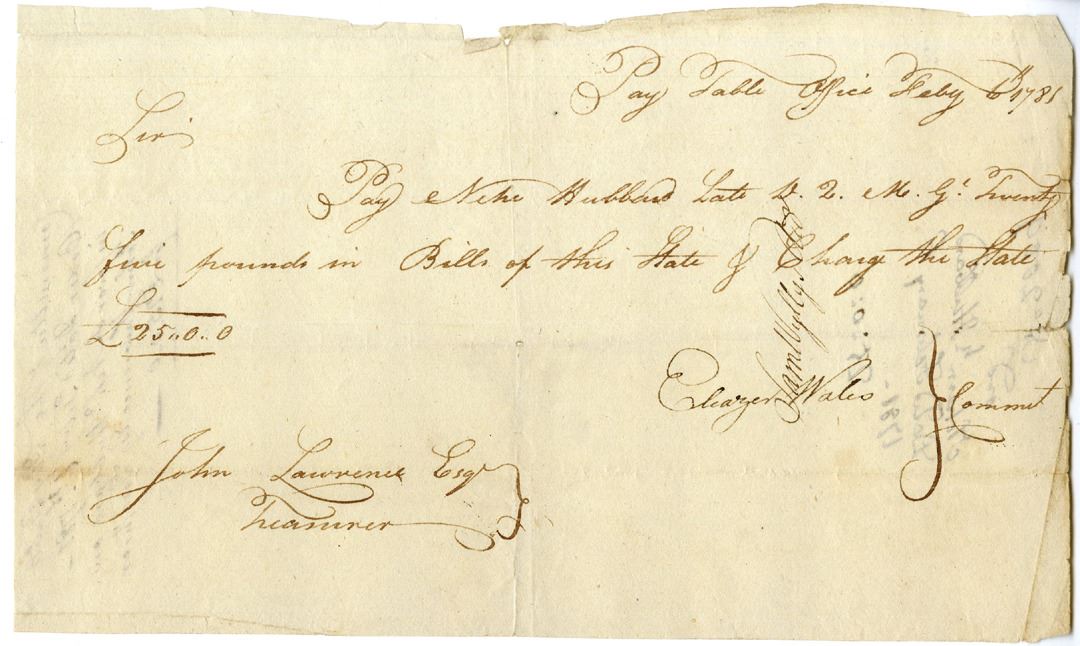 Pay Table Office Feby 6th 1781
Sir
Pay Nehe Hubbard Late D. Q. M. Gl Twenty
five pounds in Bills of this State & Charge the State
£ 25.. 0.. 0
Saml Wyllys
Eleazer Wales } Commit
John Lawrence Esqr
Treasurer